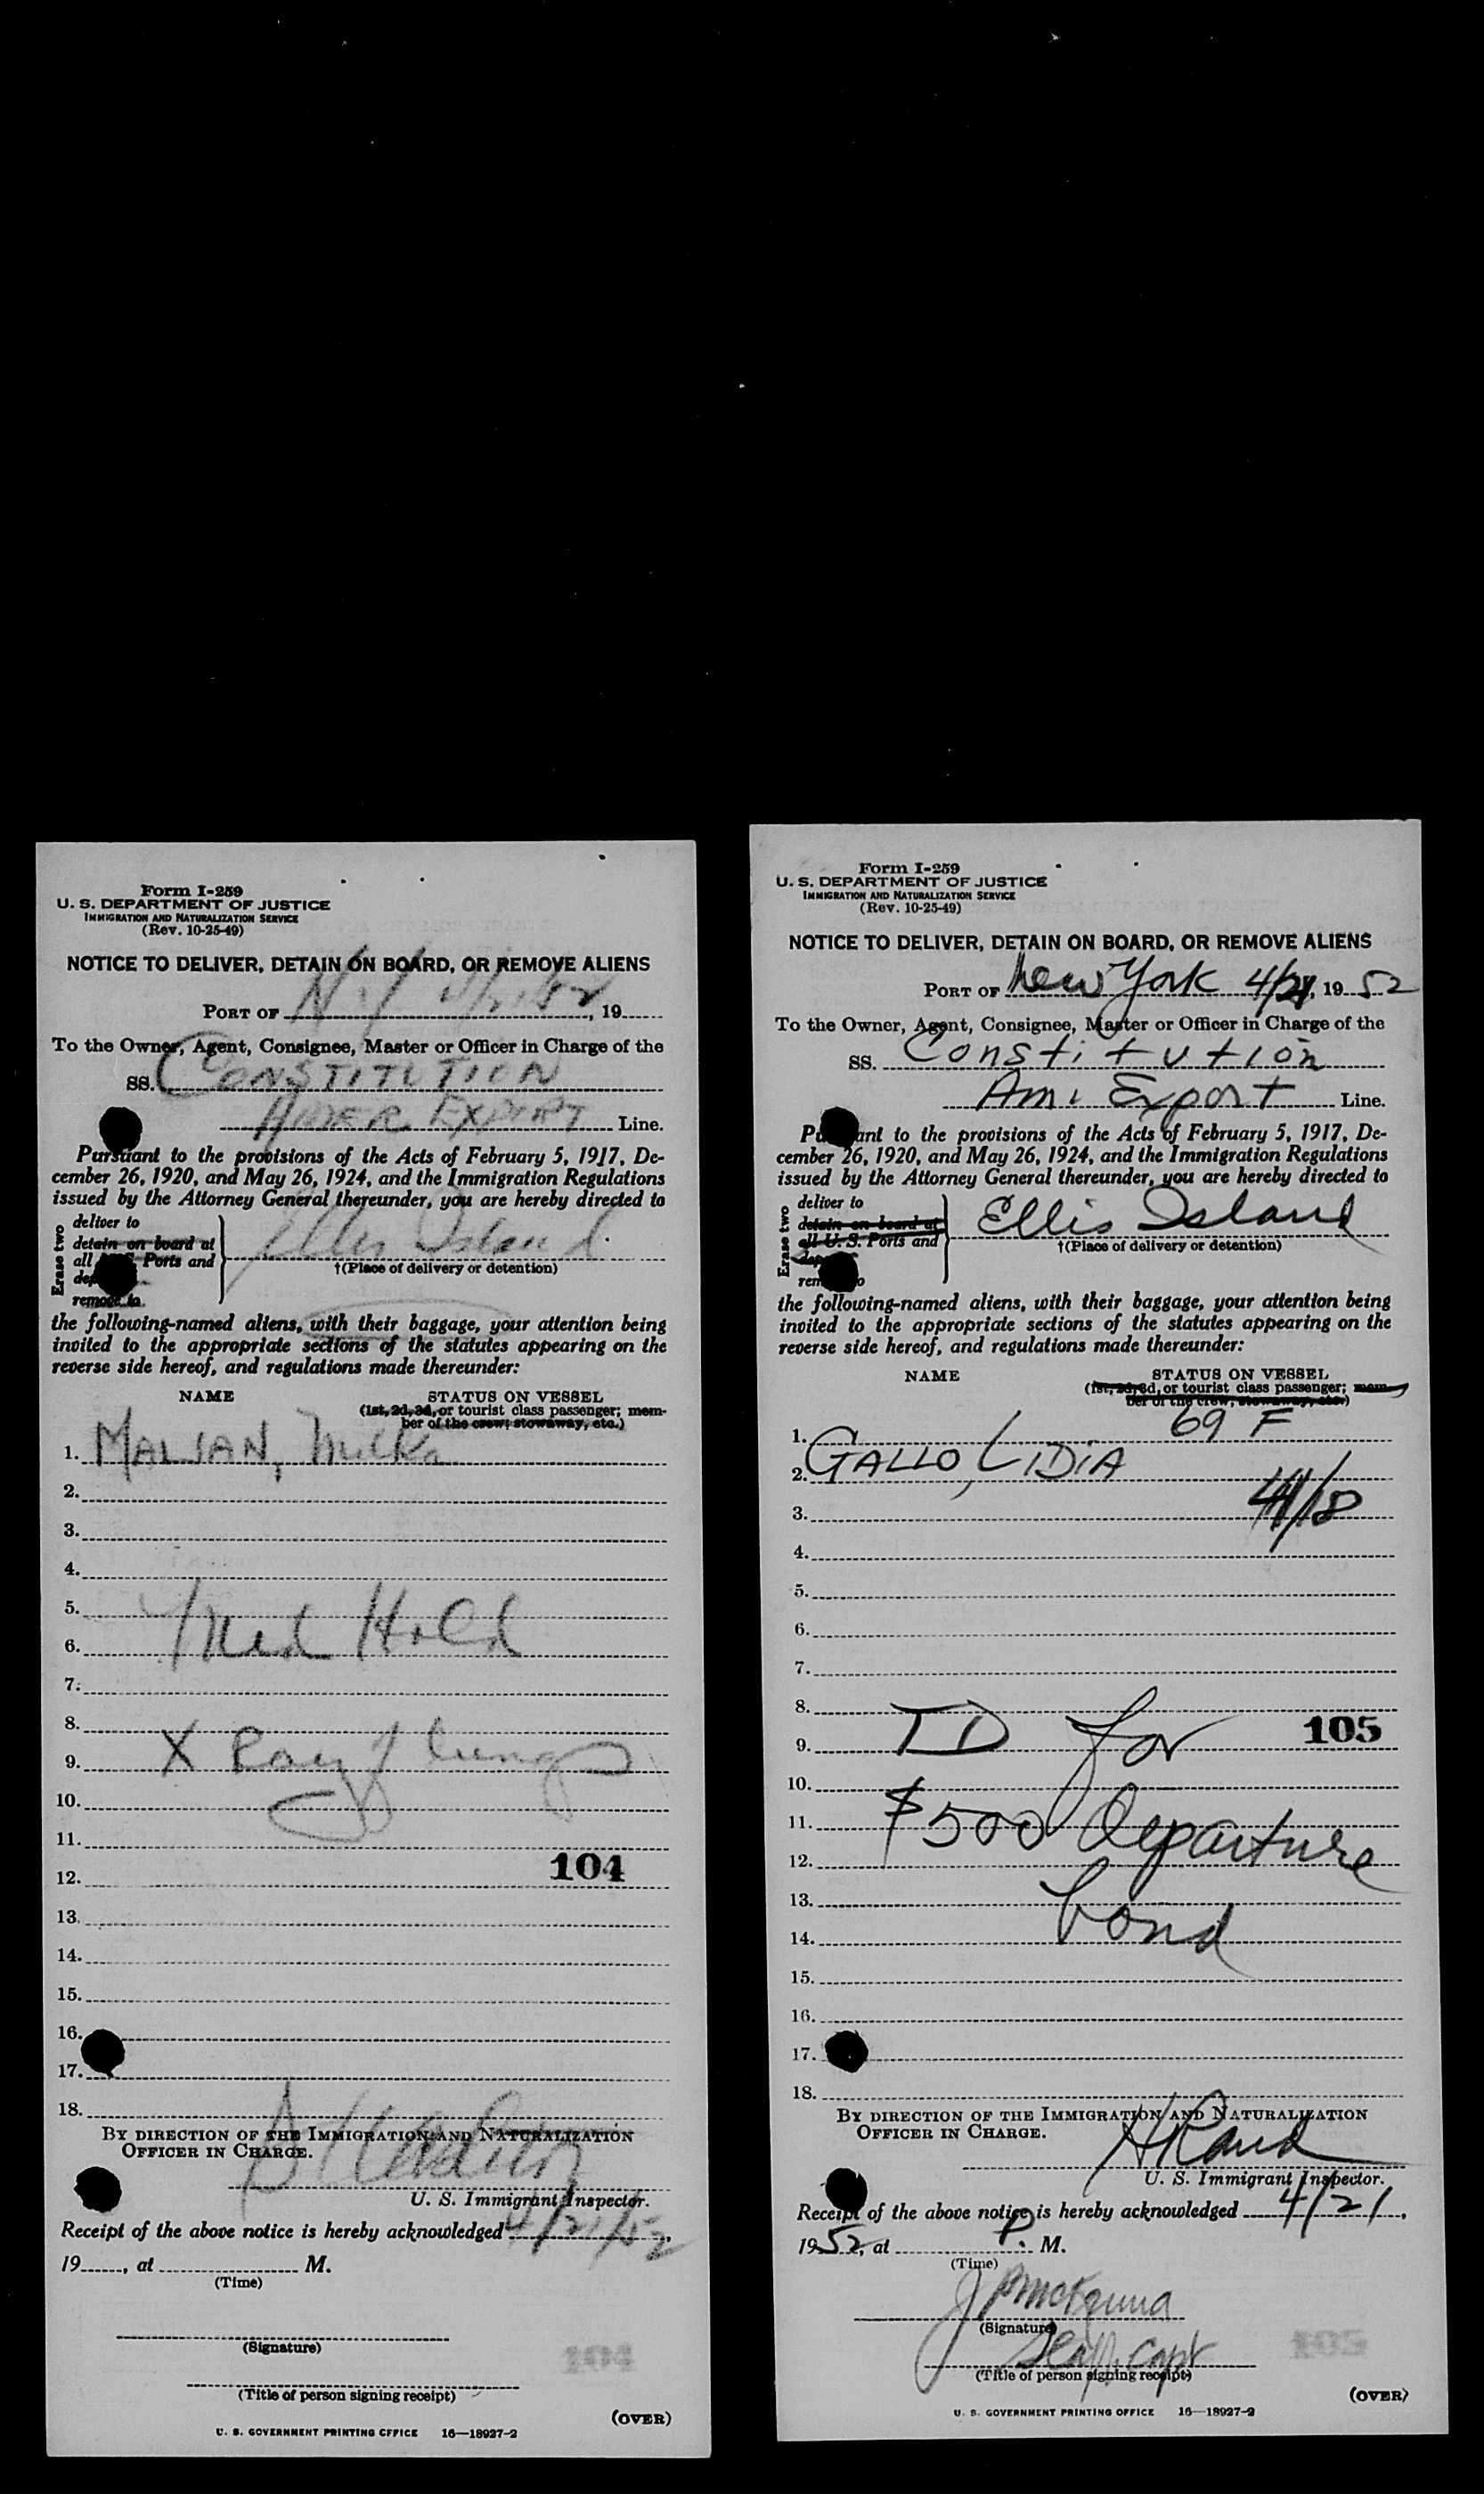 Form I-259
U. S. DEPARTMENT OF JUSTICE
IMMIGRATION AND NATURALIZATION SERVICE
(Rev. 10-25-49)
NOTICE TO DELIVER, DETAIN ON BOARD, OR REMOVE ALIENS
PORT OF N.Y. 4/21/52, 19
To the Owner, Agent, Consignee, Master or Officer in Charge of the
SS. CONSTITUTION
AMER. EXPORT Line.
Pursuant to the provisions of the Acts of February 5, 1917, De-
cember 26, 1920, and May 26, 1924, and the Immigration Regulations
issued by the Attorney General thereunder, you are hereby directed to
Erase two
deliver to
detain on board at
all U. S. Ports and
remove to
Ellis Island
†(Place of delivery or detention)
the following-named aliens, with their baggage, your attention being
invited to the appropriate sections of the statutes appearing on the
reverse side hereof, and regulations made thereunder:
NAME STATUS ON VESSEL
(1st, 2d, 3d, or tourist class passenger; mem-
ber of the crew; stowaway, etc.)
1. MALJAN, Milka
2.
3.
4.
5.
6. Med Hold
7.
8.
9. X Ray of lungs
10.
11.
12. 104
13.
14.
15.
16.
17.
18.
BY DIRECTION OF THE IMMIGRATION AND NATURALIZATION
OFFICER IN CHARGE.
U. S. Immigrant Inspector.
Receipt of the above notice is hereby acknowledged 4/21/52,
19, at M.
(Time)
(Signature)
104
(Title of person signing receipt)
(OVER)
U. S. GOVERNMENT PRINTING OFFICE 16—18927-2
Form I-259
U. S. DEPARTMENT OF JUSTICE
IMMIGRATION AND NATURALIZATION SERVICE
(Rev. 10-25-49)
NOTICE TO DELIVER, DETAIN ON BOARD, OR REMOVE ALIENS
PORT OF New York 4/21, 1952
To the Owner, Agent, Consignee, Master or Officer in Charge of the
SS. Constitution
Am. Export Line.
Pursuant to the provisions of the Acts of February 5, 1917, De-
cember 26, 1920, and May 26, 1924, and the Immigration Regulations
issued by the Attorney General thereunder, you are hereby directed to
Erase two
deliver to
detain on board at
all U. S. Ports and
remove to
Ellis Island
†(Place of delivery or detention)
the following-named aliens, with their baggage, your attention being
invited to the appropriate sections of the statutes appearing on the
reverse side hereof, and regulations made thereunder:
NAME STATUS ON VESSEL
(1st, 2d, 3d, or tourist class passenger; mem-
ber of the crew, stowaway, etc.)
1. 69 F
2. GALLO, LIDIA
3. /18
4.
5.
6.
7.
8.
9. TD for 105
10.
11. $500 departure
12.
13.
14. bond
15.
16.
17.
18.
BY DIRECTION OF THE IMMIGRATION AND NATURALIZATION
OFFICER IN CHARGE.
H Rand
U. S. Immigrant Inspector.
Receipt of the above notice is hereby acknowledged 4/21,
1952, at P. M.
(Time)
(Signature)
(Title of person signing receipt)
105
(OVER)
U. S. GOVERNMENT PRINTING OFFICE 16—18927-2